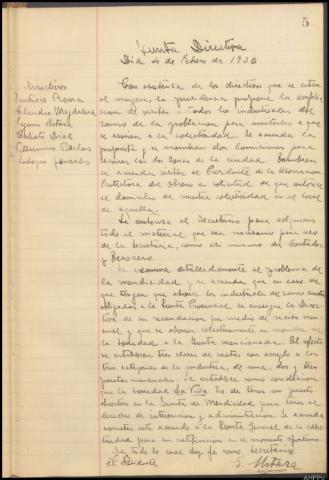 5
Junta Directiva
Día 4 de Enero de 1936
Directivos
Con asistencia de los directivos que se citan
al margen, la presidencia propone la amplia-
cion de visitas a todos los industriales del
ramo de la poblacion para invitarles a que
se asocien a la colectividad. Se acuerda la
propuesta y se nombran dos Comisiones para
recorrer las dos zonas de la ciudad. Tambien
se acuerda visitar al Presidente de la Asociacion
Protectora del Obrero en solicitud de que autorice
el domicilio de nuestra colectividad en el local
de aquella.
Se autoriza al Secretario para adquirir
todo el material que sea necesario para uso
de la Secretaria, como asi mismo del Contador
y Tesorero.
Se examina detalladamente el problema de
la mendicidad, y se acuerda que en caso de
que tengan que abonar los industriales del ramo cuotas
obligadas a la Junta Provincial, se encargue la Direc-
tiva de su recaudacion por medio de recibo men-
sual y que se abonen colectivamente en nombre de
la Sociedad a la Junta mencionada. Al efecto
se establecen tres clases de cuotas con arreglo a las
tres categorias de la industria, de una, dos y tres
pesetas mensuales. Se establece como condicion
que la sociedad ha de tener un puesto
directivo en la Junta de Mendicidad que tenga el
derecho de intervencion y administracion. Se acuerda
someter este acuerdo a la Junta General de la colec-
tividad para su ratificacion en el momento oportuno.
De todo lo cual doy fe como Secretario
El Presidente
AHPPo